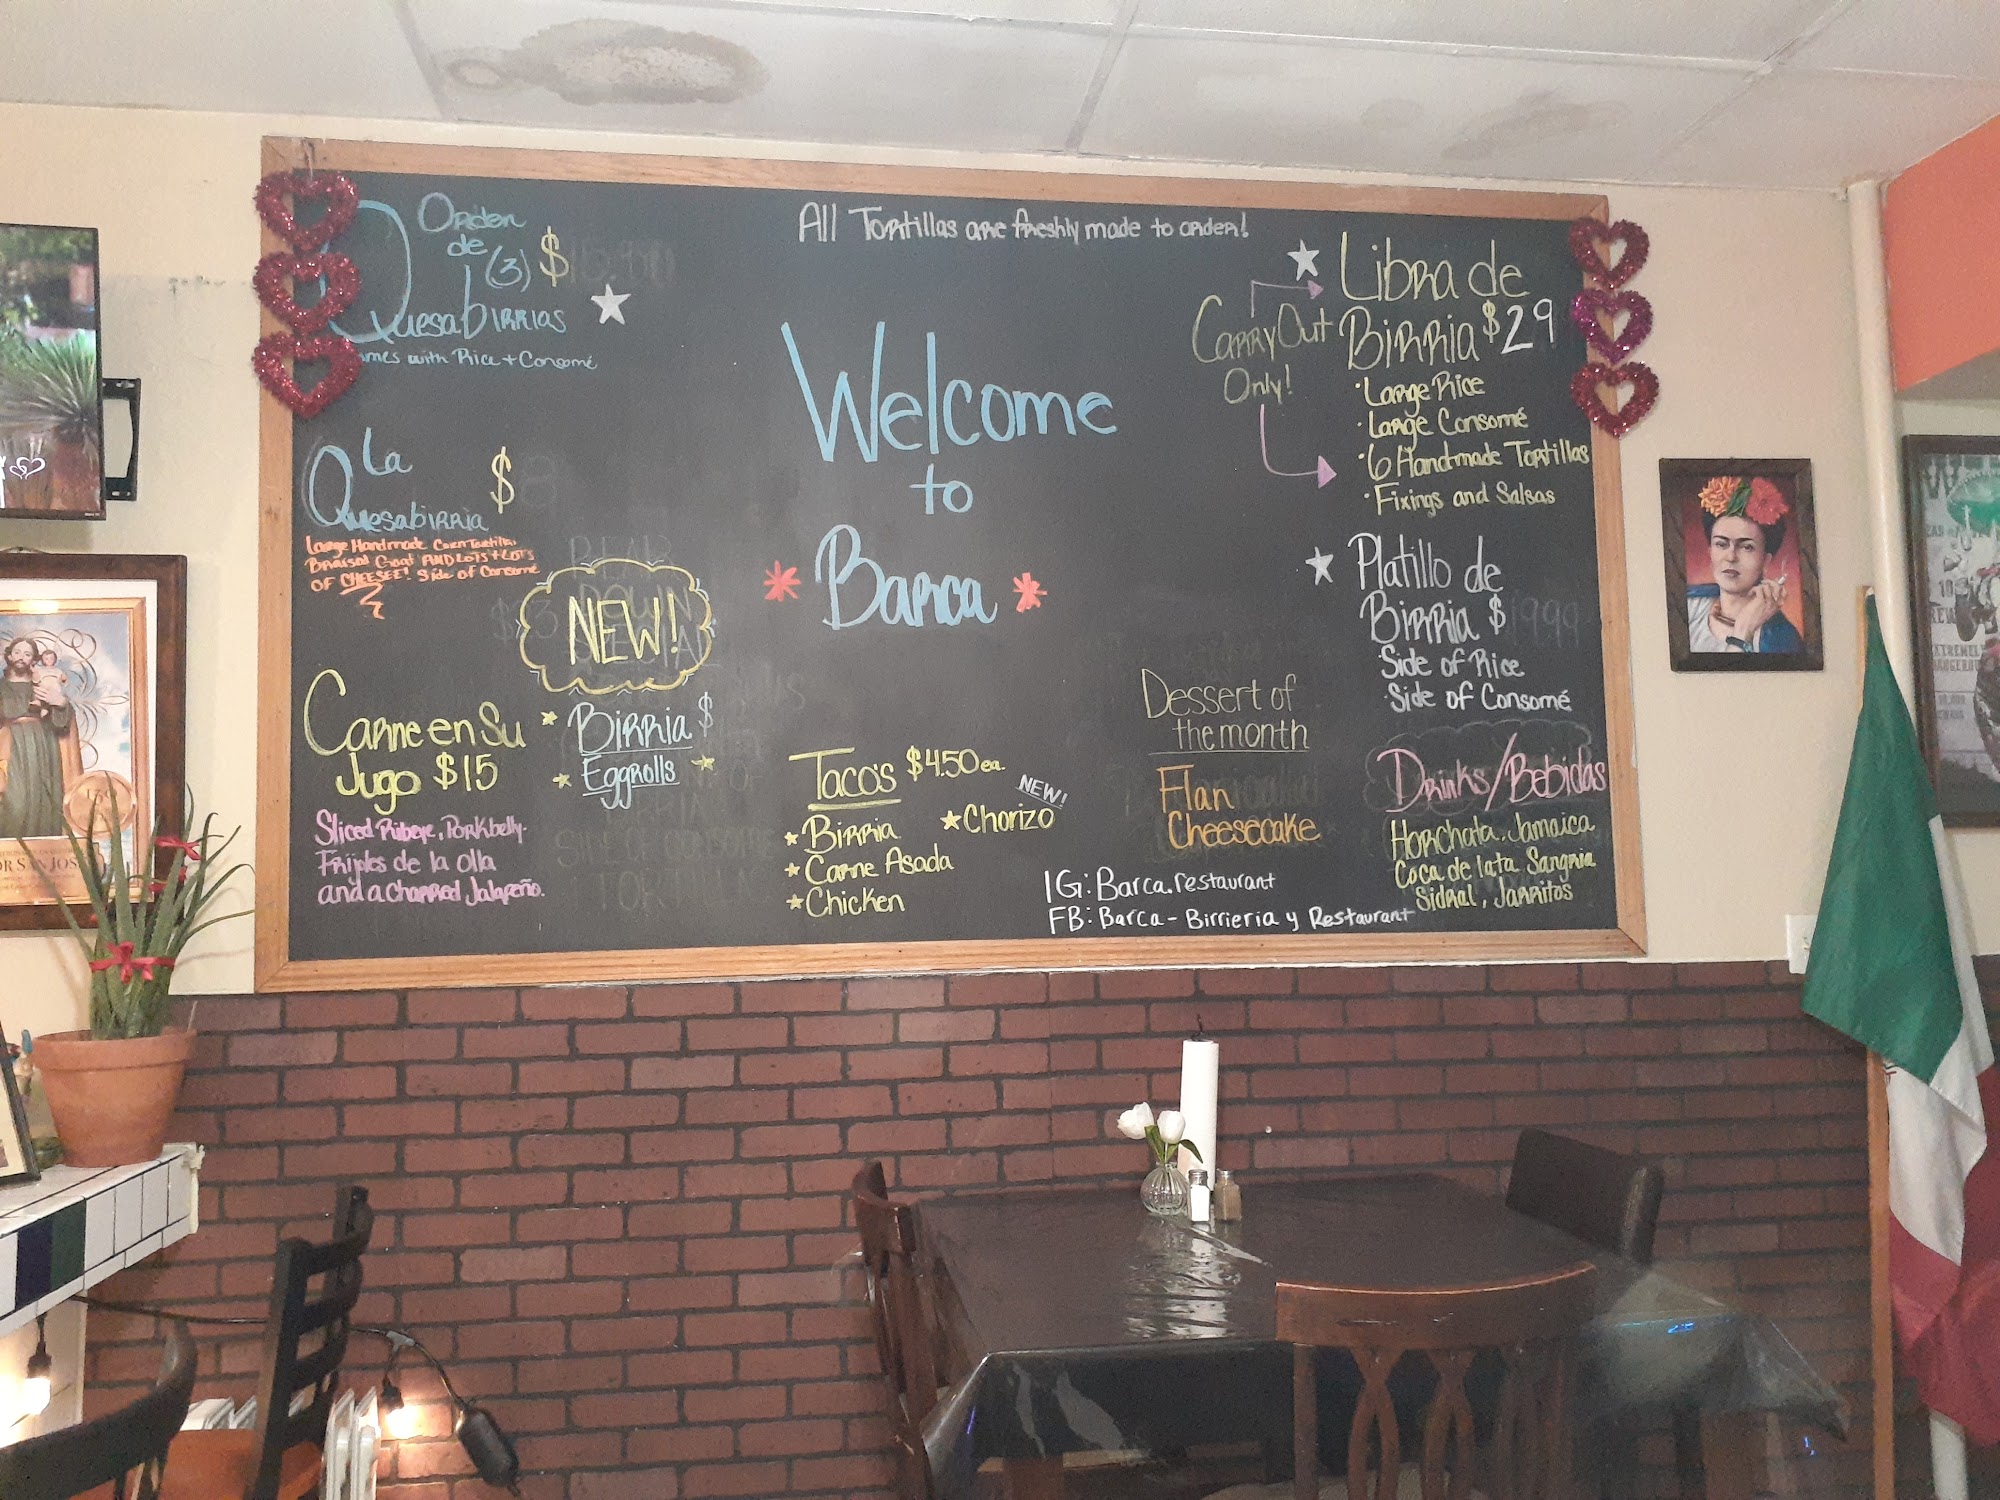 All Tortillas are freshly made to order!
Orden
de
(3) $
Quesabirrias
comes with Rice + Consomé
La
Quesabirria $
Large Handmade Corn Tortilla,
Braised Goat AND LOTS + LOTS
OF CHEESE! Side of Consomé
NEW!
Birria $
Eggrolls
Carne en Su
Jugo $15
Sliced Ribeye, Porkbelly.
Frijoles de la olla
and a charred Jalapeño.
Welcome
to
Barca
Taco's $4.50 ea.
Birria
Carne Asada
Chicken
NEW!
Chorizo
Dessert of
the month
Flan
Cheesecake
IG: Barca.restaurant
FB: Barca - Birrieria y Restaurant
Carry Out
Only!
Libra de
Birria $29
· Large Rice
· Large Consomé
· 6 Handmade Tortillas
· Fixings and Salsas
Platillo de
Birria $
· Side of Rice
· Side of Consomé
Drinks/Bebidas
Horchata, Jamaica
Coca de lata Sangria
Sidral, Jarritos